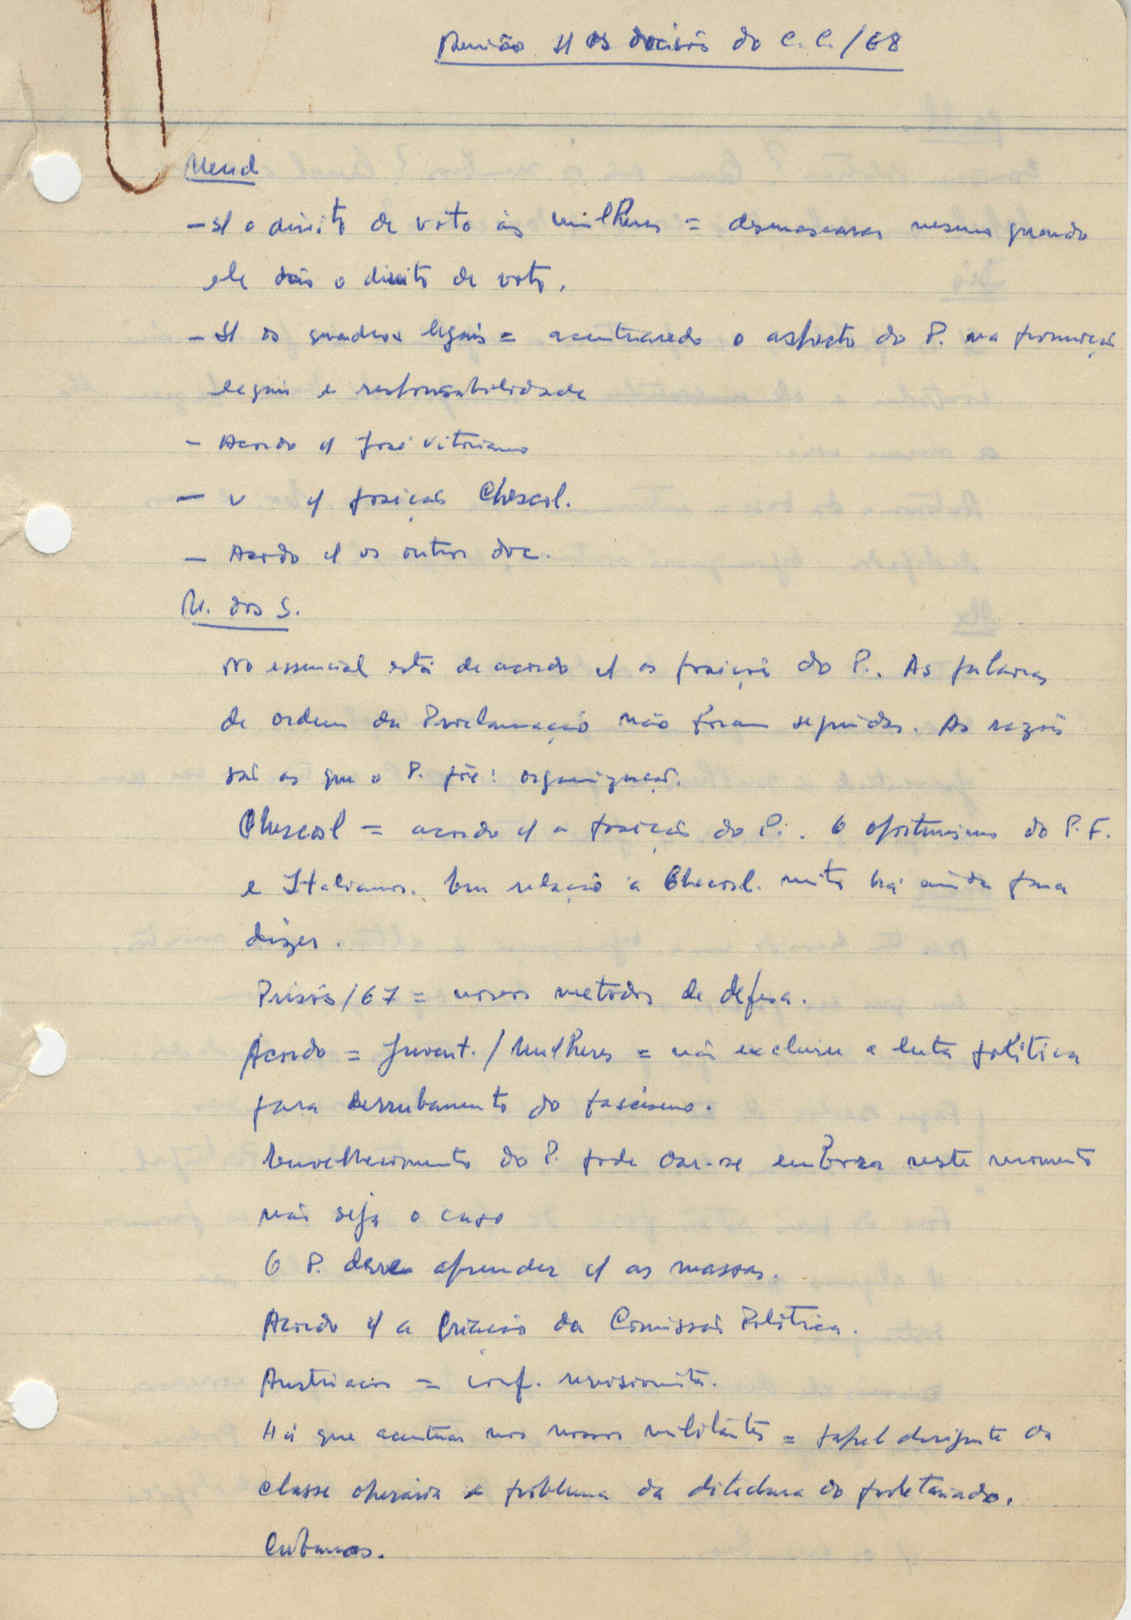 Reunião s/ as decisões do C. C. /68
Mend
- s/ o direito de voto às mulheres = desmascarar mesmo quando
ele deia o direito de voto.
- s/ os quadros legais = acentuando o aspecto do P. na formação
legais e responsabilidade
- Acordo c/ José Vitoriano
- v c/ posição Checosl.
- Acordo c/ os outros doc.
M. dos S.
No essencial está de acordo c/ as posições do P.. As palavras
de ordem da Proclamação não foram seguidas. As razões
são as que o P. põe: organização.
Checosl = acordo c/ a posição do P.. O oportunismo do P. F.
e Italianos. Em relação à Checosl. muito há ainda para
dizer.
Prisões/67 = novos metodos de defesa.
Acordo = Juvent. / Mulheres = não excluir a luta política
para derrubamento do fascismo.
Envelhecimento do P. pode dar-se embora neste momento
não seja o caso
O P. deve aprender c/ as massas.
Acordo c/ a criação da Comissão Política.
Austriacos = conf. revisionista.
Há que acentuar nos nossos militantes = papel dirigente da
classe operária e problema da ditadura do proletariado.
Cubanos.